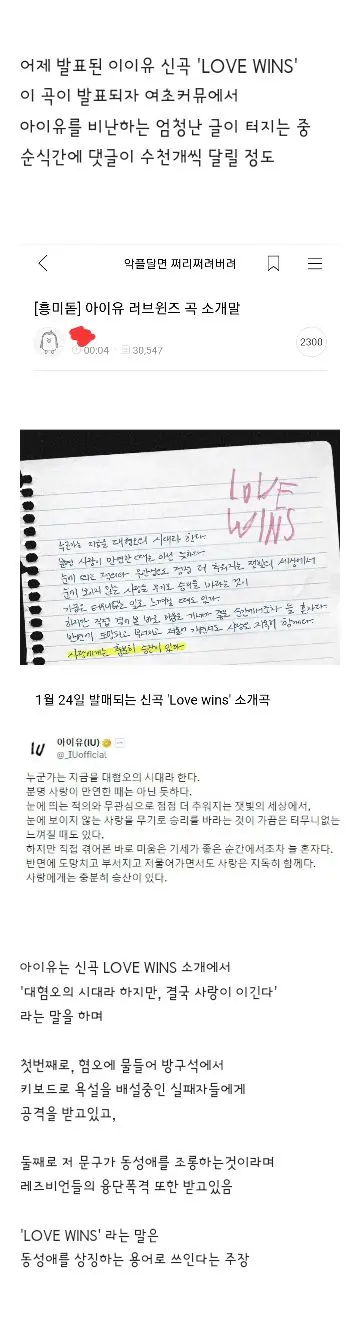 어제 발표된 이이유 신곡 'LOVE WINS'
이 곡이 발표되자 여초커뮤에서
아이유를 비난하는 엄청난 글이 터지는 중
순식간에 댓글이 수천개씩 달릴 정도
악플달면 쩌리쩌려버려
[흥미돋] 아이유 러브윈즈 곡 소개말
00:04 30,547
2300
LOVE
WINS
누군가는 지금을 대혐오의 시대라 한다.
분명 사랑이 만연한 때는 아닌 듯하다.
눈에 띄는 적의와 무관심으로 점점 더 추워지는 잿빛의 세상에서
눈에 보이지 않는 사랑을 무기로 승리를 바라는 것이
가끔은 터무니없는 일로 느껴질 때도 있다.
하지만 직접 겪어본 바로 미움은 기세가 좋은 순간에서조차 늘 혼자다.
반면에 도망치고 부서지고 저물어 가면서도 사랑은 지독히 함께다.
사랑에게는 충분히 승산이 있다.
1월 24일 발매되는 신곡 'Love wins' 소개곡
IU
아이유(IU)
@_IUofficial
누군가는 지금을 대혐오의 시대라 한다.
분명 사랑이 만연한 때는 아닌 듯하다.
눈에 띄는 적의와 무관심으로 점점 더 추워지는 잿빛의 세상에서,
눈에 보이지 않는 사랑을 무기로 승리를 바라는 것이 가끔은 터무니없는
느껴질 때도 있다.
하지만 직접 겪어본 바로 미움은 기세가 좋은 순간에서조차 늘 혼자다.
반면에 도망치고 부서지고 저물어가면서도 사랑은 지독히 함께다.
사랑에게는 충분히 승산이 있다.
아이유는 신곡 LOVE WINS 소개에서
'대혐오의 시대라 하지만, 결국 사랑이 이긴다'
라는 말을 하며
첫번째로, 혐오에 물들어 방구석에서
키보드로 욕설을 배설중인 실패자들에게
공격을 받고있고,
둘째로 저 문구가 동성애를 조롱하는것이라며
레즈비언들의 융단폭격 또한 받고있음
'LOVE WINS' 라는 말은
동성애를 상징하는 용어로 쓰인다는 주장